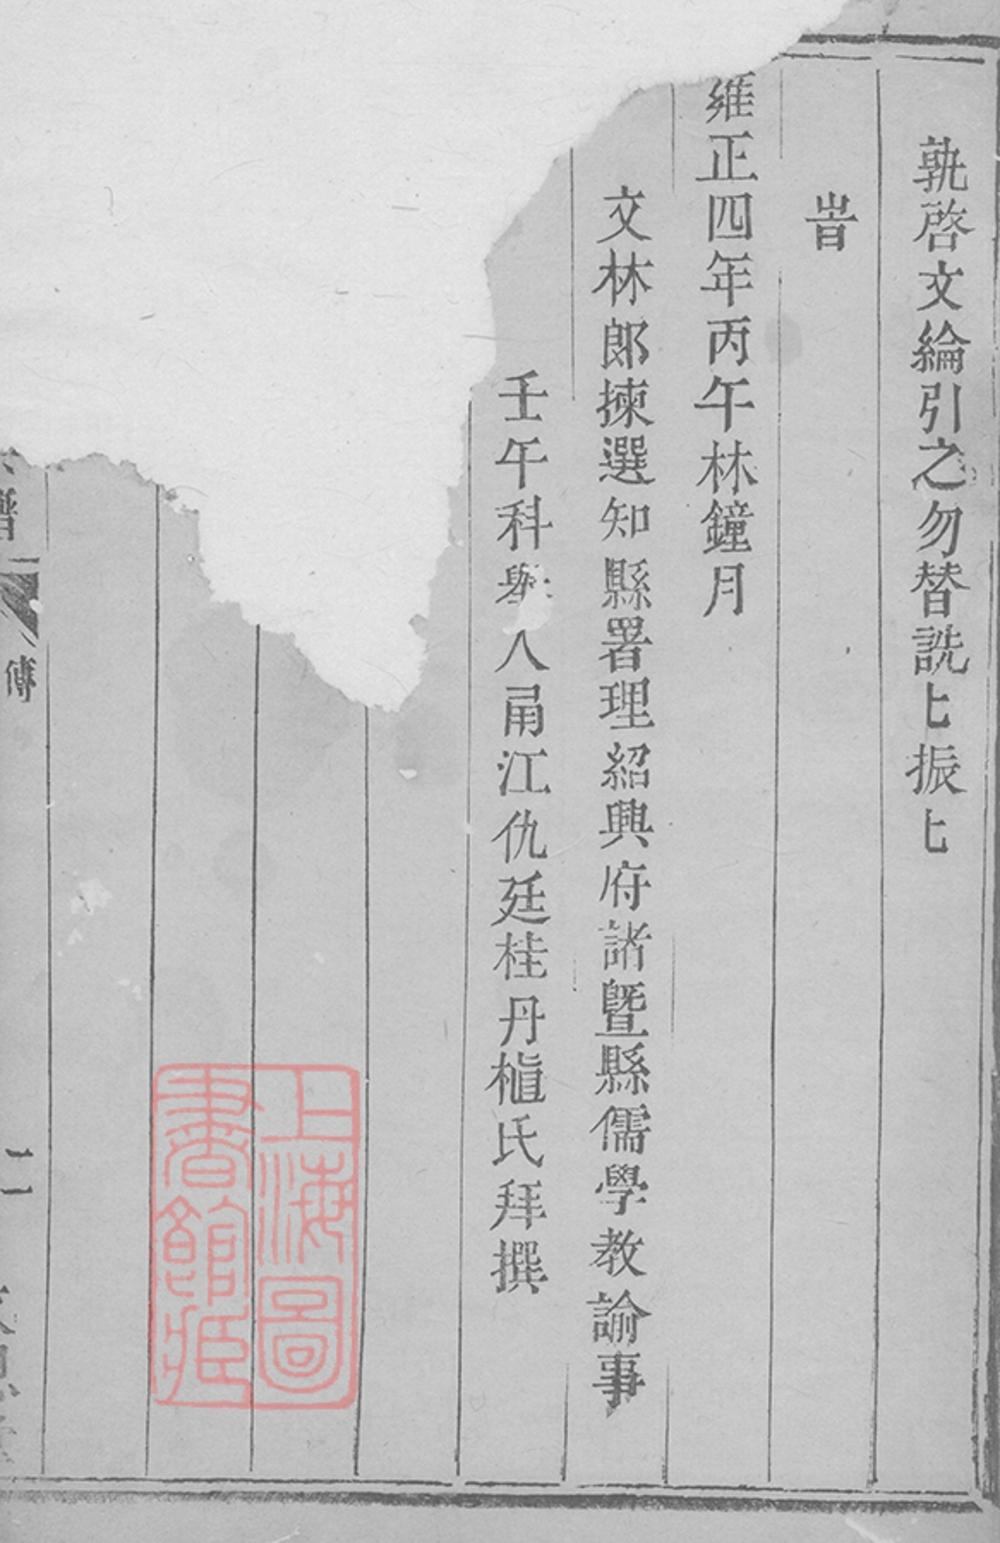 孰啓文綸引之勿替詵匕振匕
旹
雍正四年丙午林鐘月
文林郎揀選知縣署理紹興府諸曁縣儒學教諭事
壬午科舉人甬江仇廷桂丹植氏拜撰
譜
傳
二
上海圖
書館藏